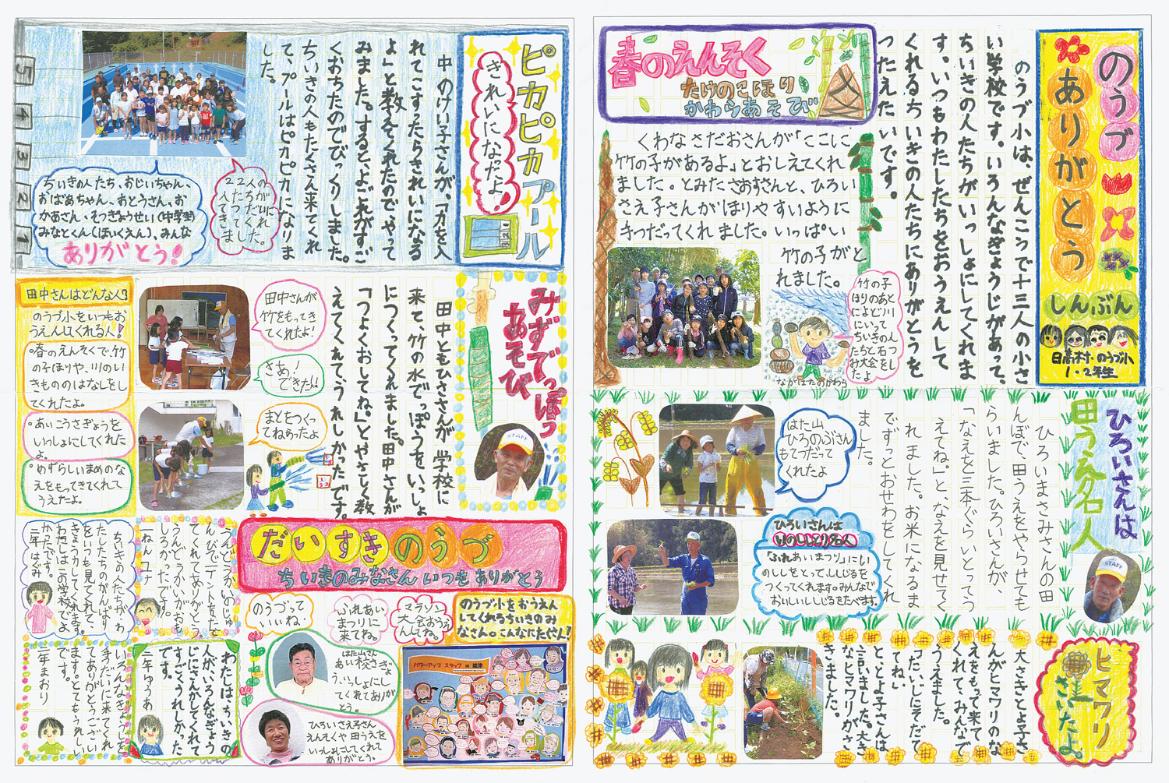 のうづ
ありがとう
しんぶん
日高村・のうづ小
1・2年生
のうづ小は、ぜんこうで十三人の小さ
い学校です。いろんなぎょうじがあって、
ちいきの人たちが、いっしょにしてくれま
す。いつもわたしたちをおうえんして
くれるちいきの人たちにありがとうを
つたえたいです。
春のえんそく
たけのこほり
かわらあそび
くわなさだおさんが「ここに
竹の子があるよ」とおしえてくれ
ました。とみたさお和さんと、ひろい
さえ子さんがほりやすいように
きってだってくれました。いっぱい
竹の子がと
れました。
竹の子
ほりのあと
によど川
にいって
ちいきの人
たちと石つ
み大会をし
たよ
ながはたのかわら
ひろいさんは
田うえ名人
ひろいまさみさんの田
んぼで、田うえをやらせても
らいました。ひろいさんが、
「なえを三本ぐらい、とって
うえてね。」と、なえを見せてく
れました。お米になるま
でずっとおせわをしてくれ
ました。
はた山
ひろのぶさん
もてつだって
くれたよ
ひろいさんは
いのししとり名人
「ふれあいまつり」にい
のししをとってししじるを
つくってくれます。みんなで
おいしいししじるをたべます。
STAFF
ヒマワリ
さいたよ
大さきとよ子さ
んがヒマワリのな
えをもって来て
くれて、みんなで
うえました。
「だいじにそだて
てね。」
と、とよ子さんは
言いました。大き
なヒマワリがさ
きました。
ピカピカプール
きれいになったよ!
中のけい子さんが、「力を入
れてこすったらきれいになる
よ」と教えてくれたので、やって
みました。すると、よごれがすご
くおちたのでびっくりしました。
ちいきの人もたくさん来てくれ
て、プールはピカピカになりま
した。
5
4
3
2
1
22人の
人たちが
きました
ちいきの人たち、おじいちゃん、
おばあちゃん、おとうさん、お
かあさん、そつぎょうせい(中学生)
みなとくん(ほいくえん)、みんな
ありがとう!
みずでっぽう
あそび
田中ともひささんが、学校に
来て、竹の水でっぽうをいっしょ
につくってくれました。田中さんが
「つよくおしてね」と、やさしく教
えてくれてうれしかったです。
STAFF
田中さんが
竹をもってき
てくれたよ!
さあ!
できたよ!
まとをつくっ
てねらったよ
田中さんはどんな人?
のうづ小をいつもお
うえんしてくれる人!
春のえんそくで、竹
の子ほりや、川のい
きもののはなしをし
てくれたよ。
あいこうさぎょうを
いっしょにしてくれた
よ。
めずらしいまめのな
えをもってきてくれて
うえたよ。
だいすきのうづ
ちいきのみなさん いつも ありがとう
のうづって
いいね。
ふれあい
まつりに
来てね。
マラソン
大会おうえ
んしてね。
のうづ小をおうえん
してくれるちいきのみ
なさん。こんなにたくさん!
はた山さん
あい校さぎょ
う、いっしょにし
てくれてありが
とう。
ひろいさえ子さん
えんそくや田うえを
いっしょにしてくれて
ありがとう。
パワーアップ スタッフ in 能津
一ねん ユナ
二年 はぐみ
わたしはちいきの
人が、いろんなぎょう
じにさんかしてくれて、
すごくうれしかった
です。
二年 ゆうあ
二年 まおり